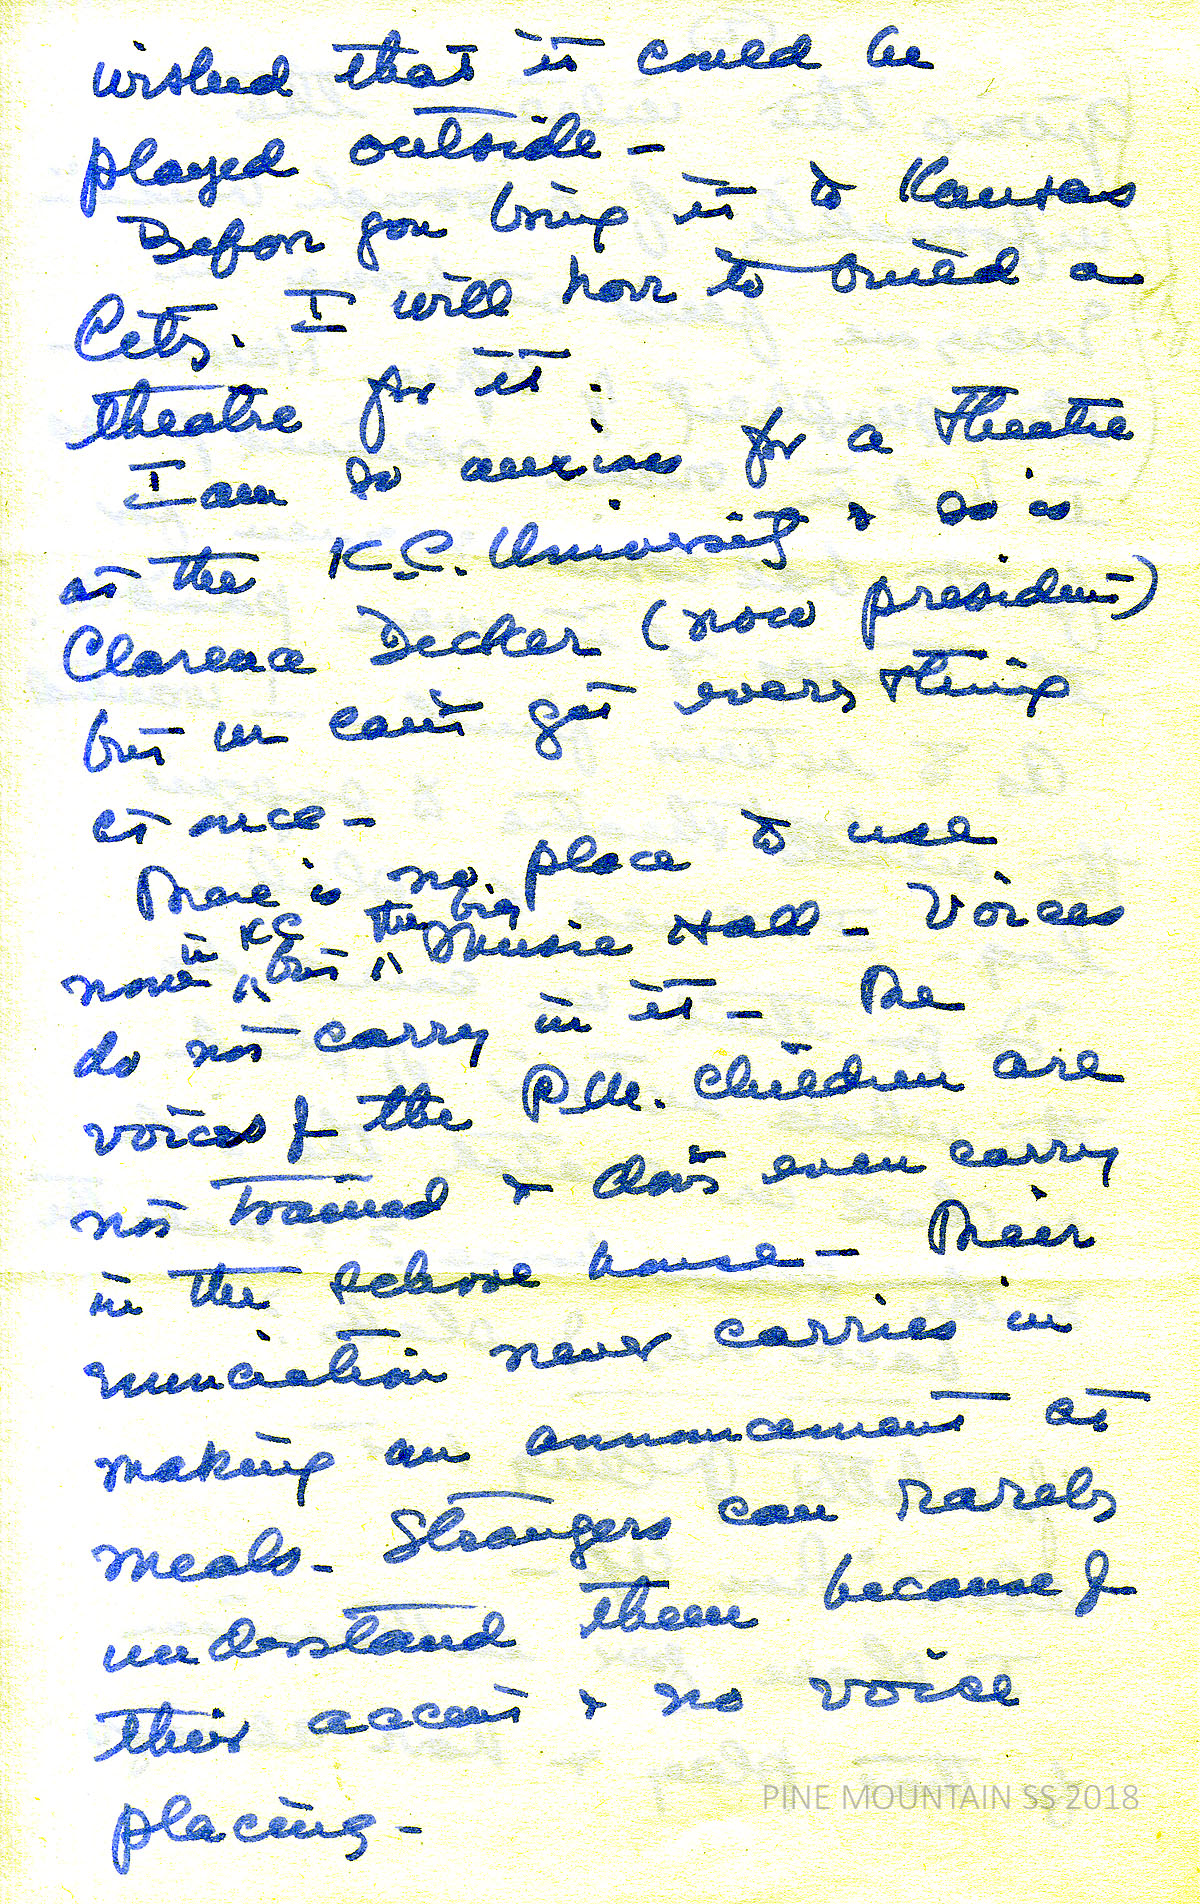 wished that it could be
played outside -
Before you bring it to Kansas
City. I will have to build a
theatre for it.
I am so anxious for a theatre
at the K.C. University & so is
Clarence Decker (now president)
but we can't get every thing
at once -
There is no place to use
now in KC but the big Music Hall - Voices
do not carry in it - The
voices of the P.M. children are
not trained & don't even carry
in the school house - Their
enunciation never carries in
making an announcement at
meals - Strangers can rarely
understand them because of
their accent & no voice
placing -
PINE MOUNTAIN SS 2018